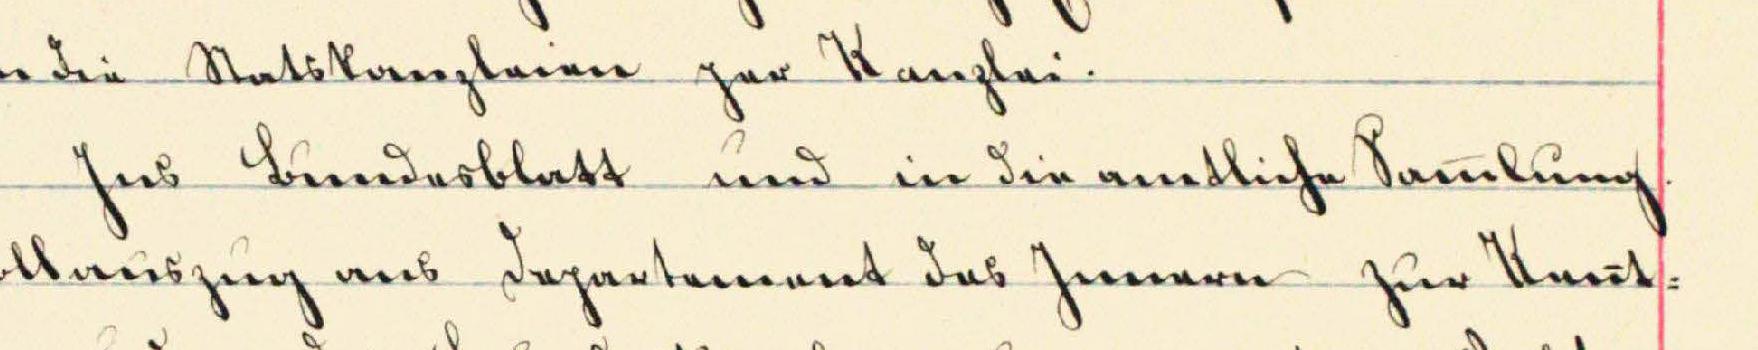 die Statskanzleien per Kanzlei.
Ins Bundesblatt und in die amtliche Sam̅lung.
ollauszug ans Departement des Innern zur Ken̅t=